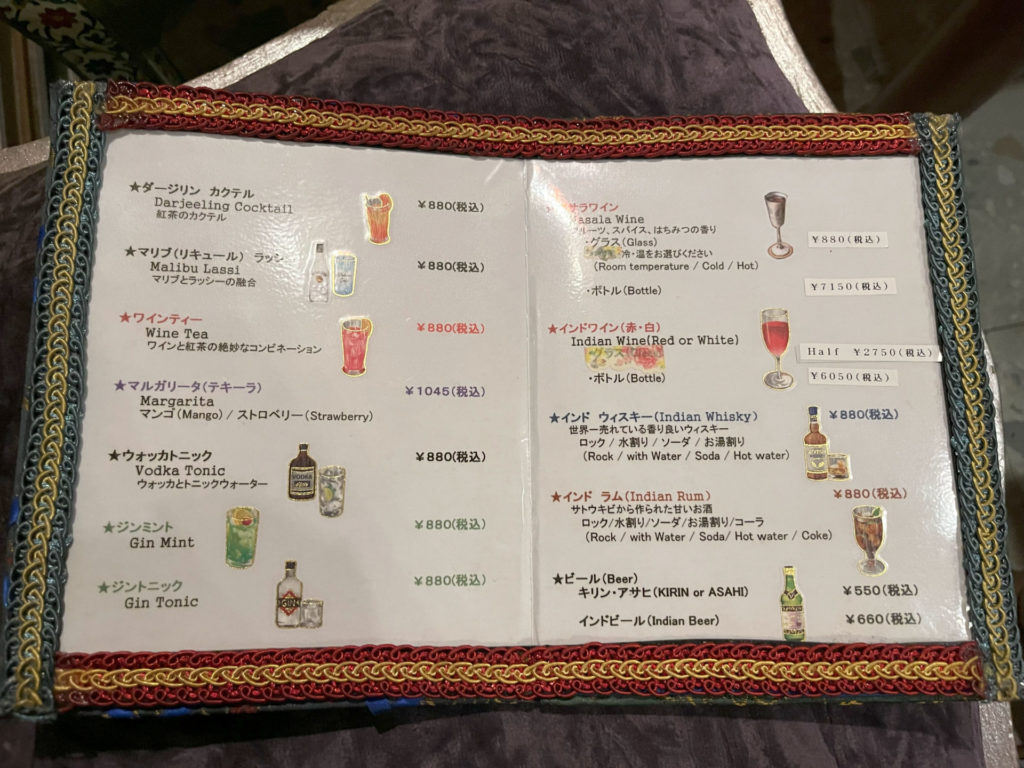 ★ダージリン カクテル
Darjeeling Cocktail
紅茶のカクテル
￥880(税込)
★マリブ(リキュール) ラッシ
Malibu Lassi
マリブとラッシーの融合
￥880(税込)
★ワインティー
Wine Tea
ワインと紅茶の絶妙なコンビネーション
￥880(税込)
★マルガリータ(テキーラ)
Margarita
マンゴ(Mango) / ストロベリー(Strawberry)
￥1045(税込)
★ウォッカトニック
Vodka Tonic
ウォッカとトニックウォーター
￥880(税込)
VODKA
★ジンミント
Gin Mint
￥880(税込)
★ジントニック
Gin Tonic
￥880(税込)
GIN
サラワイン
asala Wine
ルーツ、スパイス、はちみつの香り
・グラス(Glass)
￥880(税込)
冷・温をお選びください
(Room temperature / Cold / Hot)
・ボトル(Bottle)
￥7150(税込)
★インドワイン(赤・白)
Indian Wine(Red or White)
Half ￥2750(税込)
・ボトル(Bottle)
￥6050(税込)
★インド ウィスキー(Indian Whisky)
￥880(税込)
世界一売れている香り良いウィスキー
ロック / 水割り / ソーダ / お湯割り
(Rock / with Water / Soda / Hot water)
★インド ラム(Indian Rum)
￥880(税込)
サトウキビから作られた甘いお酒
ロック/水割り/ソーダ/お湯割り/コーラ
(Rock / with Water / Soda/ Hot water / Coke)
★ビール(Beer)
キリン・アサヒ(KIRIN or ASAHI)
￥550(税込)
インドビール(Indian Beer)
￥660(税込)